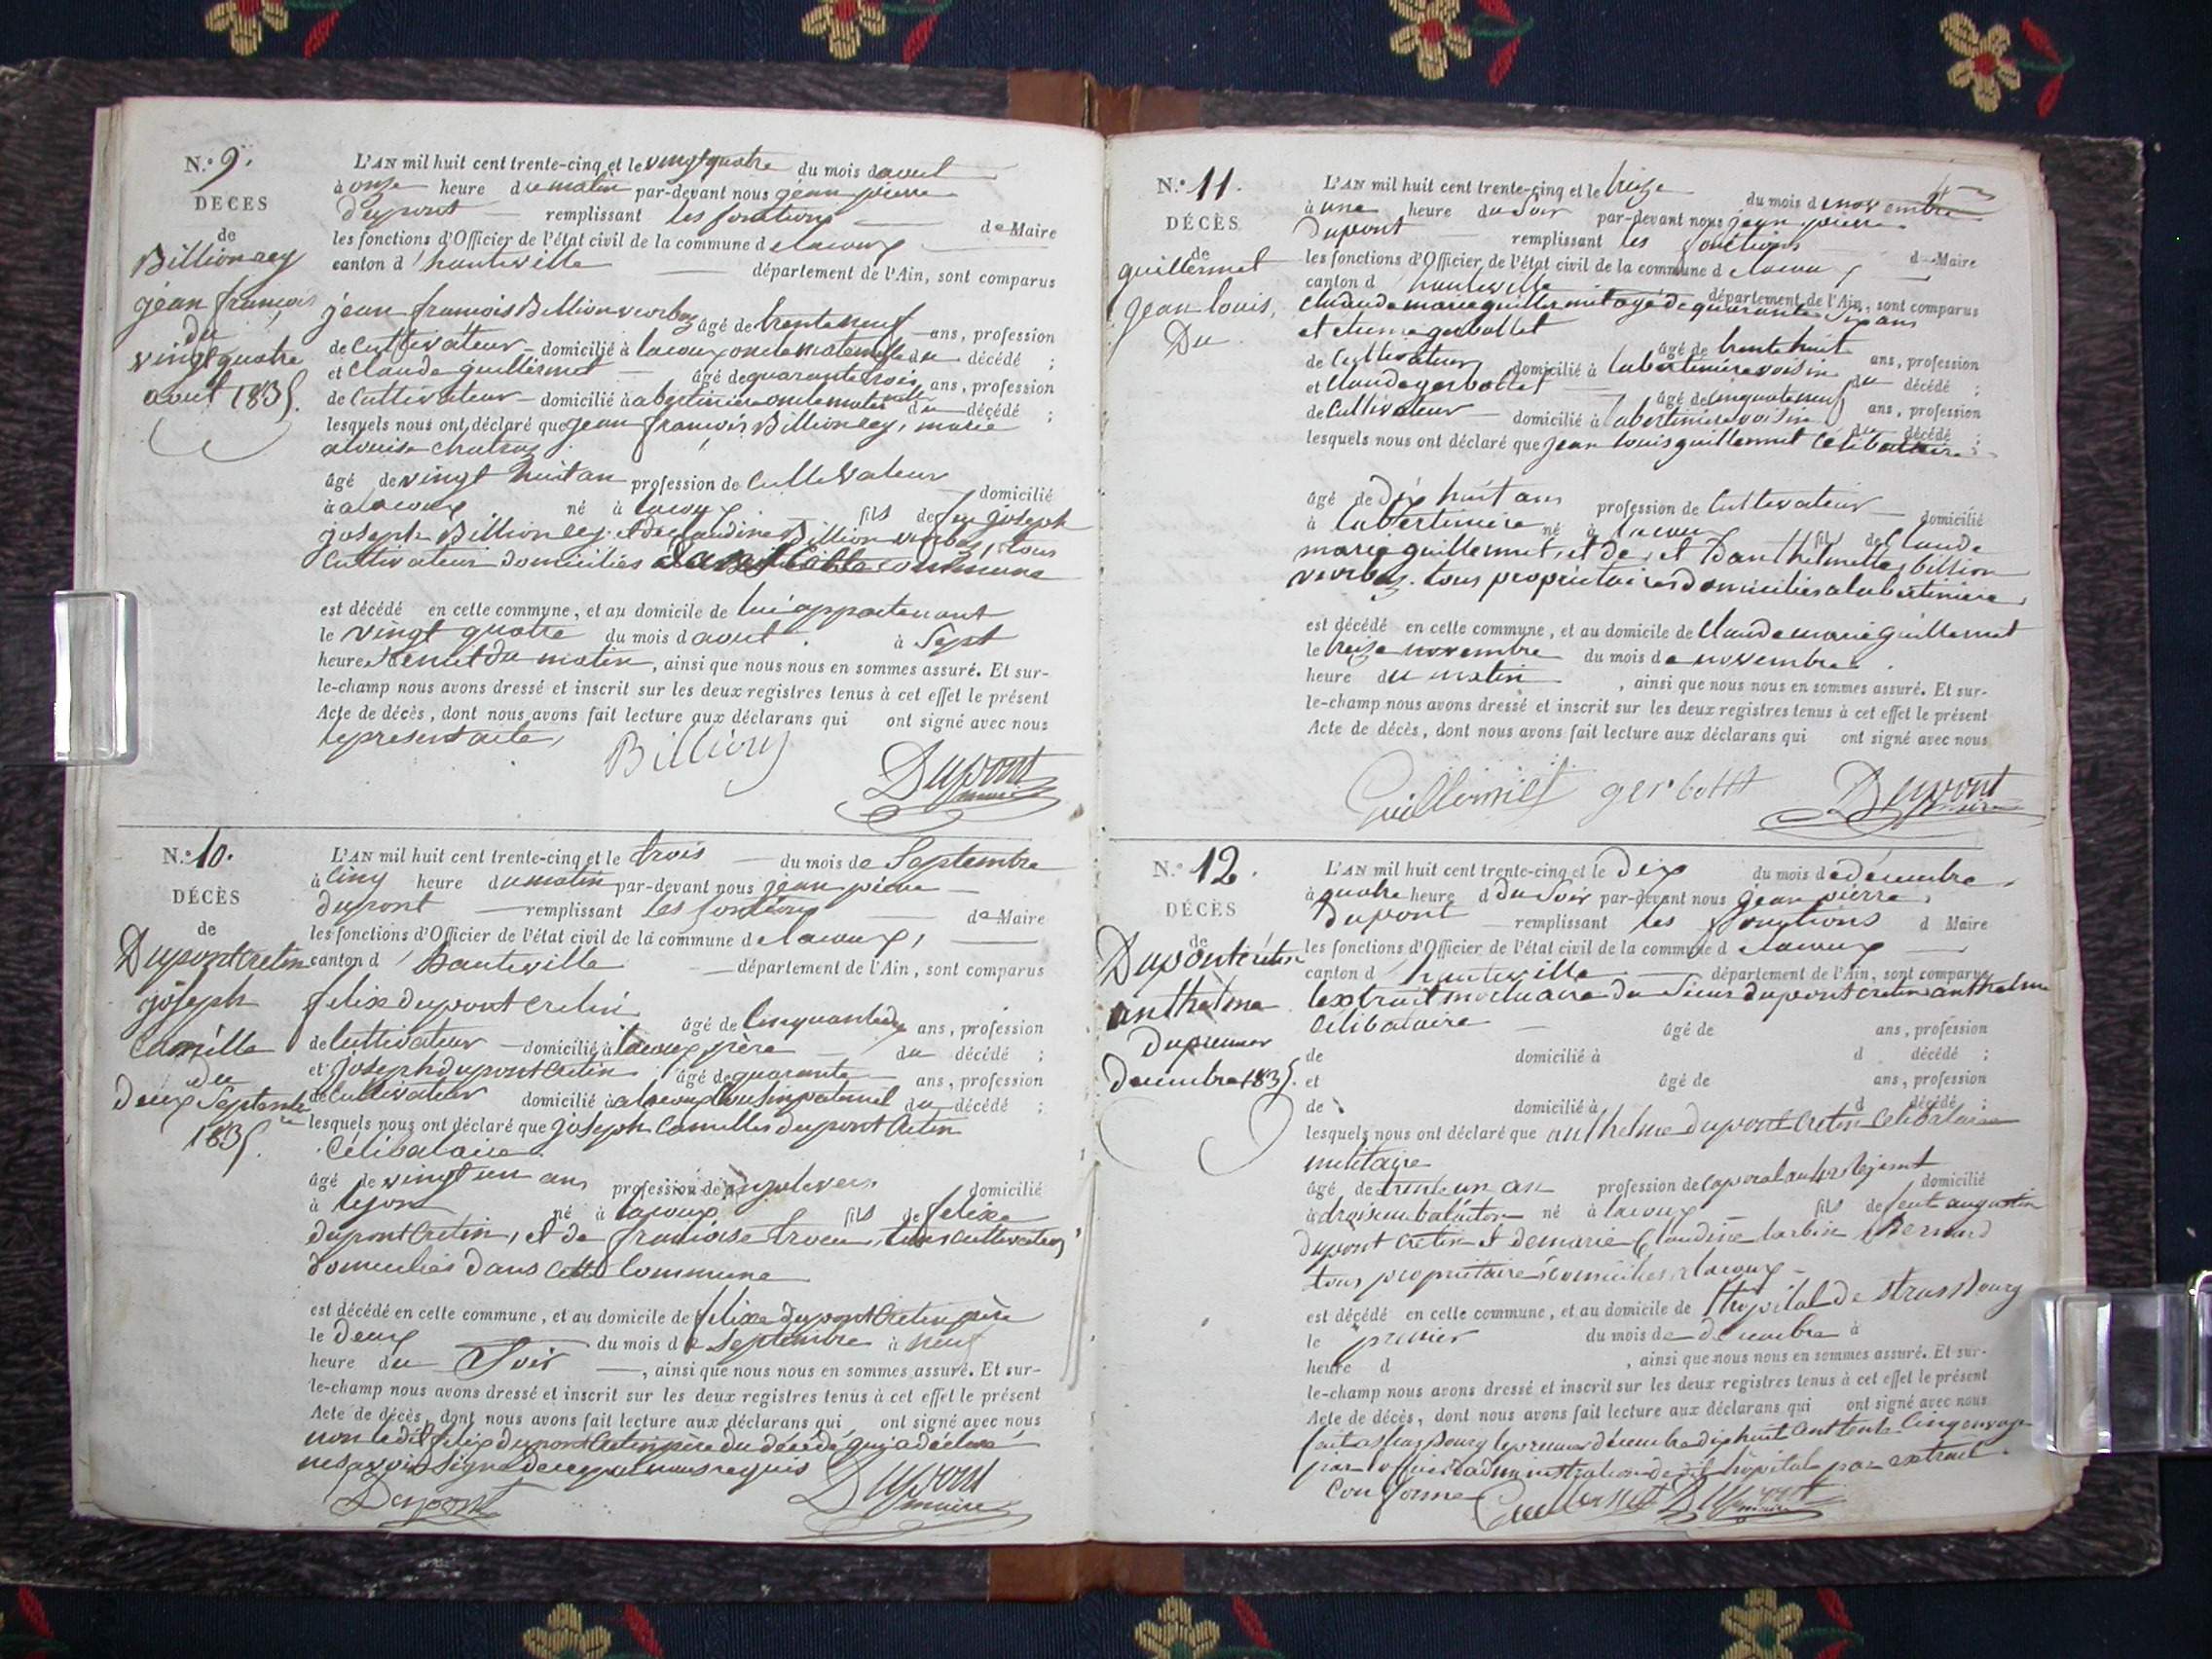 N.° 9.
DECES
de
Billion rey
jean françois
du
vingt quatre
aout 1835.
L'AN mil huit cent trente-cinq et le vingt quatre du mois d aout
à onze heure du matin par-devant nous jean pierre
dupont remplissant les fonctions de Maire
les fonctions d'Officier de l'état civil de la commune de lacoux
canton d'hauteville département de l'Ain, sont comparus
jean francois Billion âgé de trente neuf ans, profession
de Cultivateur domicilié à lacoux oncle maternelle du décédé ;
et Claude guillermet âgé de quarante trois ans, profession
de Cultivateur domicilié à du décédé ;
lesquels nous ont déclaré que jean françois Billion rey, marie
a louise
âgé de vingt huit an profession de Cultivateur domicilié
à a lacoux né à lacoux fils de feu joseph
joseph Billion rey et de claudine Billion tous
Cultivateur domiciliés cette commune
est décédé en cette commune, et au domicile de lui appartenant
le vingt quatre du mois d aout à Sept
heures du matin, ainsi que nous nous en sommes assuré. Et sur-
le-champ nous avons dressé et inscrit sur les deux registres tenus à cet effet le présent
Acte de décès, dont nous avons fait lecture aux déclarans qui ont signé avec nous
le present acte,
Dupont
maire
N.° 10.
DÉCÈS
de
Dupont cretin
joseph
Camille
du
Deux Septembre
1835.
L'AN mil huit cent trente-cinq et le trois du mois de Septembre
à Cinq heure du matin par-devant nous jean pierre
dupont remplissant les fonctions de Maire
les fonctions d'Officier de l'état civil de la commune de lacoux,
canton d'hauteville département de l'Ain, sont comparus
felix dupont cretin
âgé de Cinquante ans, profession
de Cultivateur domicilié à lacoux père du décédé ;
et joseph dupont Cretin âgé de quarante ans, profession
de Cultivateur domicilié à a lacoux Cousin paternel du décédé ;
lesquels nous ont déclaré que joseph Camille dupont Cretin
Célibataire
âgé de vingt un ans profession de domicilié
à lyon né à lacoux fils de felix
dupont Cretin, et de françoise tous cultivateurs
domiciliés dans Cette Commune
est décédé en cette commune, et au domicile de felix dupont Cretin père
le deux du mois de Septembre à neuf
heure du Soir, ainsi que nous nous en sommes assuré. Et sur-
le-champ nous avons dressé et inscrit sur les deux registres tenus à cet effet le présent
Acte de décès, dont nous avons fait lecture aux déclarans qui ont signé avec nous
non ledit felix dupont Cretin père du décédé qui a déclaré
ne savoir Signé de ce par nous requis
Dupont Dupont
maire
N.° 11.
DÉCÈS
de
guillermet
jean louis,
Du
L'AN mil huit cent trente-cinq et le treize du mois de novembre
à une heure du Soir par-devant nous jean pierre
Dupont remplissant les fonctions de Maire
les fonctions d'Officier de l'état civil de la commune de lacoux
canton d hauteville département de l'Ain, sont comparus
Claude marie guillermet agé de quarante Six ans
et gerbollet
âgé de trente huit ans, profession
de Cultivateur domicilié à labertinière voisin du décédé ;
et Claude gerbollet âgé de Cinquante neuf ans, profession
de Cultivateur domicilié à labertinière voisin du décédé ;
lesquels nous ont déclaré que jean louis guillermet Célibataire
âgé de dix huit ans profession de Cultivateur domicilié
à labertinière né à lacoux fils de Claude
marie guillermet, et de et Danthelmette billion
tous propriétaires domiciliés a labertiniere
est décédé en cette commune, et au domicile de Claude marie guillermet
le treize novembre du mois de novembre
heure du matin, ainsi que nous nous en sommes assuré. Et sur-
le-champ nous avons dressé et inscrit sur les deux registres tenus à cet effet le présent
Acte de décès, dont nous avons fait lecture aux déclarans qui ont signé avec nous
Guillermet gerbollet Dupont
maire
N.° 12.
DÉCÈS
de
Dupont cretin
anthelme
Du premier
Decembre 1835.
L'AN mil huit cent trente-cinq et le Dix du mois de décembre
à quatre heure d du Soir par-devant nous jean pierre
Dupont remplissant les fonctions d Maire
les fonctions d'Officier de l'état civil de la commune d elacoux
canton d hauteville département de l'Ain, sont comparus
lextrait mortuaire du Sieur dupont cretin anthelme
Célibataire âgé de ans, profession
de domicilié à d décédé ;
et âgé de ans, profession
de domicilié à d décédé ;
lesquels nous ont déclaré que anthelme dupont Cretin Célibataire
militaire
âgé de trente un an profession de Caporal au domicilié
à né à lacoux fils de feut augustin
dupont Cretin et de marie Claudine Bernard
tous propriétaire domiciliés a lacoux
est décédé en cette commune, et au domicile de lhopital de strasbourg
le premier du mois de decembre à
heure d , ainsi que nous nous en sommes assuré. Et sur-
le-champ nous avons dressé et inscrit sur les deux registres tenus à cet effet le présent
Acte de décès, dont nous avons fait lecture aux déclarans qui ont signé avec nous
fait a strasbourg le premier décembre dix huit Cent trente Cinq
par administration de hôpital par extrait
Conforme Guillermet Dupont
maire